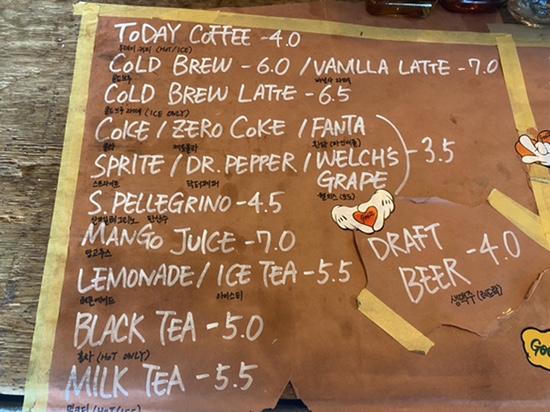 TODAY COFFEE - 4.0
투데이 커피 (HOT/ICE)
COLD BREW - 6.0 / VANILLA LATTE - 7.0
콜드브루 바닐라 라떼
COLD BREW LATTE - 6.5
콜드브루 라떼 (ICE ONLY)
COKE / ZERO COKE / FANTA
콜라 제로콜라 환타 (파인애플)
SPRITE / DR. PEPPER / WELCH'S GRAPE - 3.5
스프라이트 닥터페퍼 웰치스 (포도)
S. PELLEGRINO - 4.5
산펠레그리노 탄산수
MANGO JUICE - 7.0
망고주스
LEMONADE / ICE TEA - 5.5
레몬에이드 아이스티
BLACK TEA - 5.0
홍차 (HOT ONLY)
MILK TEA - 5.5
밀크티 (HOT/ICE)
DRAFT
BEER - 4.0
생맥주
Goo